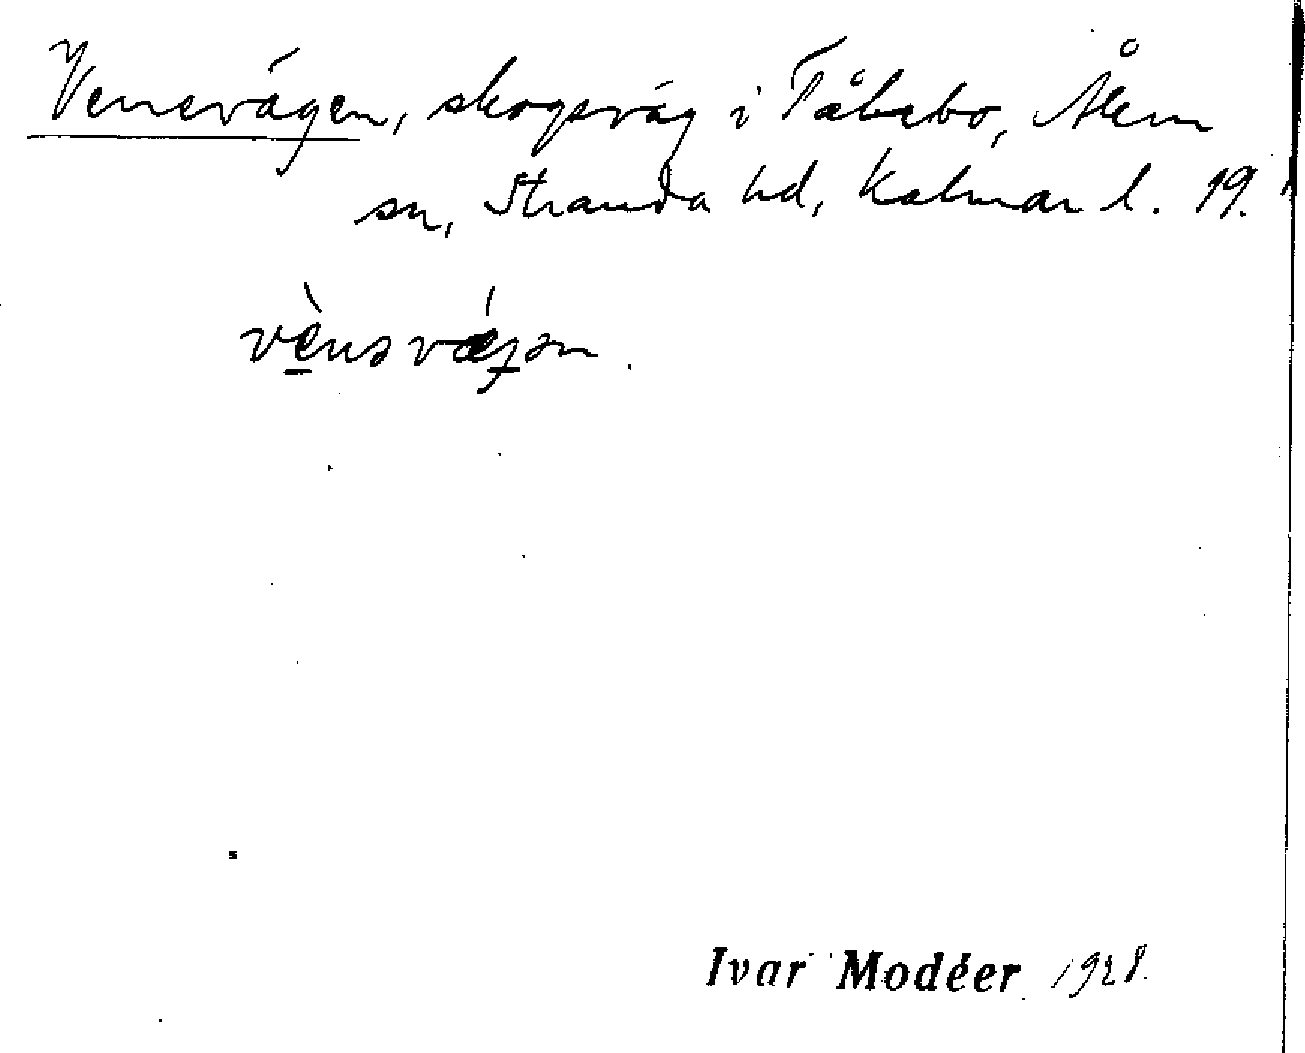 Venevägen, skogsväg i Påbebo, Ålem
sn, Stranda hd, Kalmar l. 19.
vènəvǽgən.
Ivar Modéer 1928.